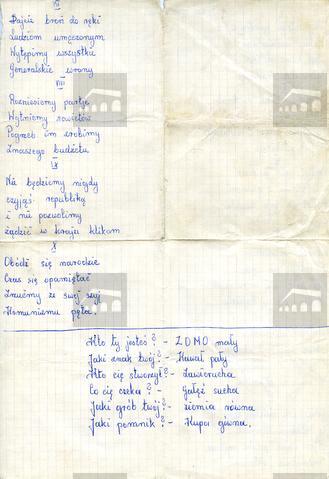 VII
Dajcie broń do ręki
Ludziom umęczonym
Wytępimy wszystkie
Generalskie wrony
VIII
Rozniesiemy partję
Wytniemy sowietów
Pogrzeb im zrobimy
Z naszego budżetu
IX
Nie będziemy nigdy
czyjąś republiką
i nie pozwolimy
rządzić w kraju klikom
X
Obódź się narodzie
Czas się opamiętać
Zrzućmy ze swej szyi
Komunizmu pęta.
Kto ty jesteś? - ZOMO mały
Jaki znak twój? - Kawał pały
Kto cię stworzył? - Zawierucha
Co cię czeka? - Gałęź sucha
Jaki grób twój? - ziemia równa
Jaki pomnik? - Kupa gówna.